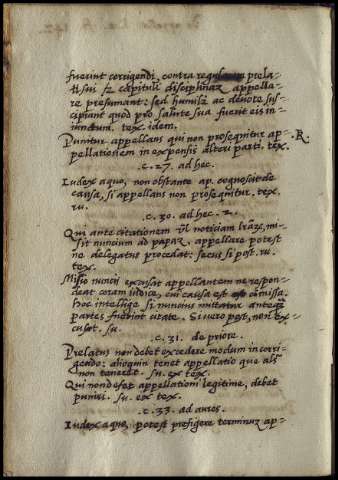 fuerint corrigendi, contra regularia prela-
ti sui, & capituli disciplinaz appella-
re presumant: sed humilr ac deuote sus-
cipiant quod pro salute sua fuerit eis in
iunctum. tex. idem.
Punitur appellans qui non prosequitur ap- R.
pellationem in expensis alteri parti. tex.
.c. 27. ad hec.
Iudex a quo, non obstante ap. cognoscit de
causa, si appellans non prosequitur. tex.
ru.
.c. 30. ad hec. 2.
Qui ante citationem vl noticiam lrãz, mi-
sit nuncium ad papaz appellare potest
ne delegatus procedat: secus si post. ru.
tex.
Missio nuncii excusat appellantem ne respon-
deat coram iudice, cui causa est commissa.
Hoc intellige si nuncius mittatur anteqz
partes fuerint citate. Si uero post, non ex-
cusat. su.
.c. 31. de priore.
Prelatus non debet excedere modum in corri-
gendo: alioquin tenet appellatio que als
non teneret. su. ex tex.
Qui non defert appellationi legitime, debet
puniri. su. ex tex.
.c. 33. ad aures.
Iudex a quo, potest prefigere terminuz ap-